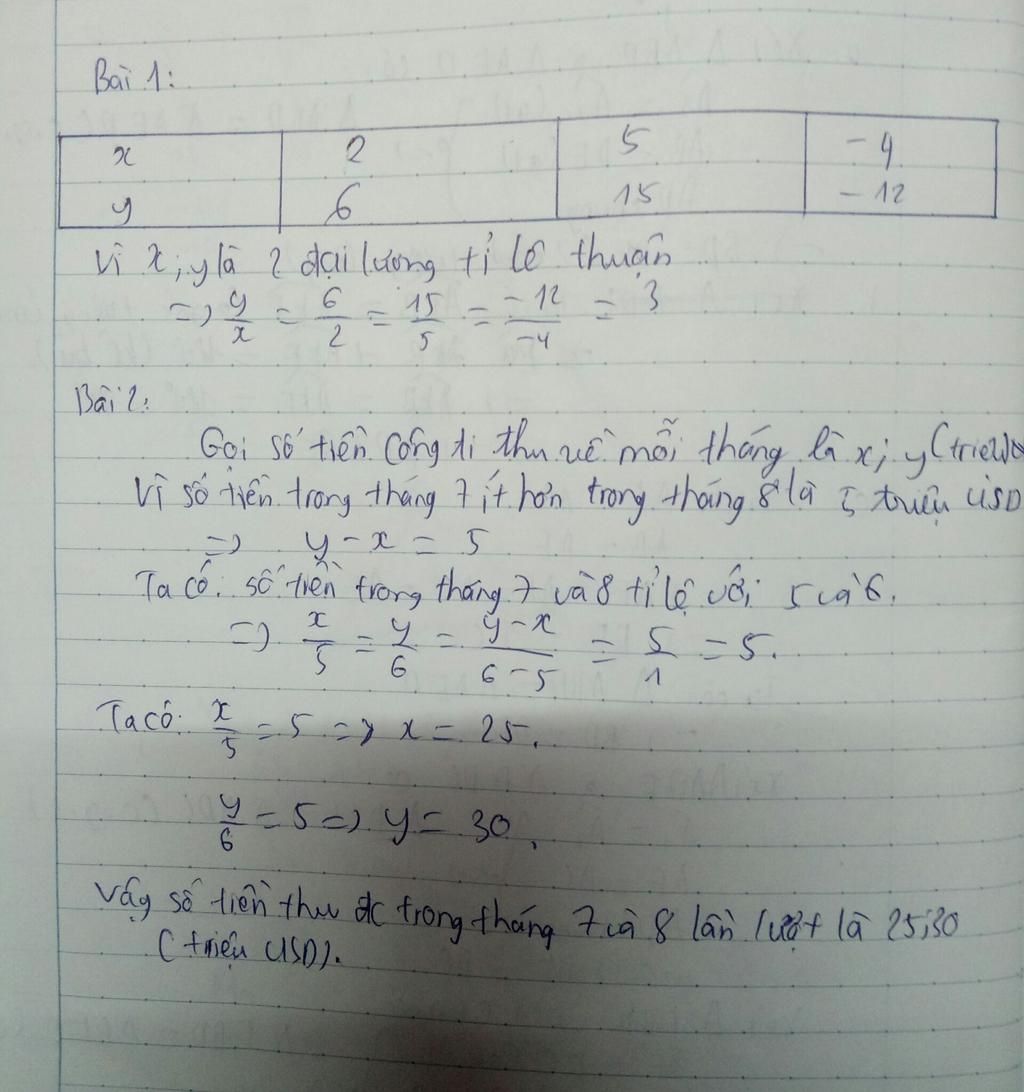 Bài 1:
x 2 5 -4
y 6 15 -12
Vì x; y là 2 đại lượng tỉ lệ thuận
=> y/x = 6/2 = 15/5 = -12/-4 = 3
Bài 2:
Gọi số tiền công ti thu về mỗi tháng là x; y (triệu
Vì số tiền trong tháng 7 ít hơn trong tháng 8 là 5 triệu USD
=> y - x = 5
Ta có: số tiền trong tháng 7 và 8 tỉ lệ với 5 và 6.
=> x/5 = y/6 = y-x/6-5 = 5/1 = 5.
Ta có: x/5 = 5 => x = 25.
y/6 = 5 => y = 30.
Vậy số tiền thu đc trong tháng 7 và 8 lần lượt là 25;30
(triệu USD).